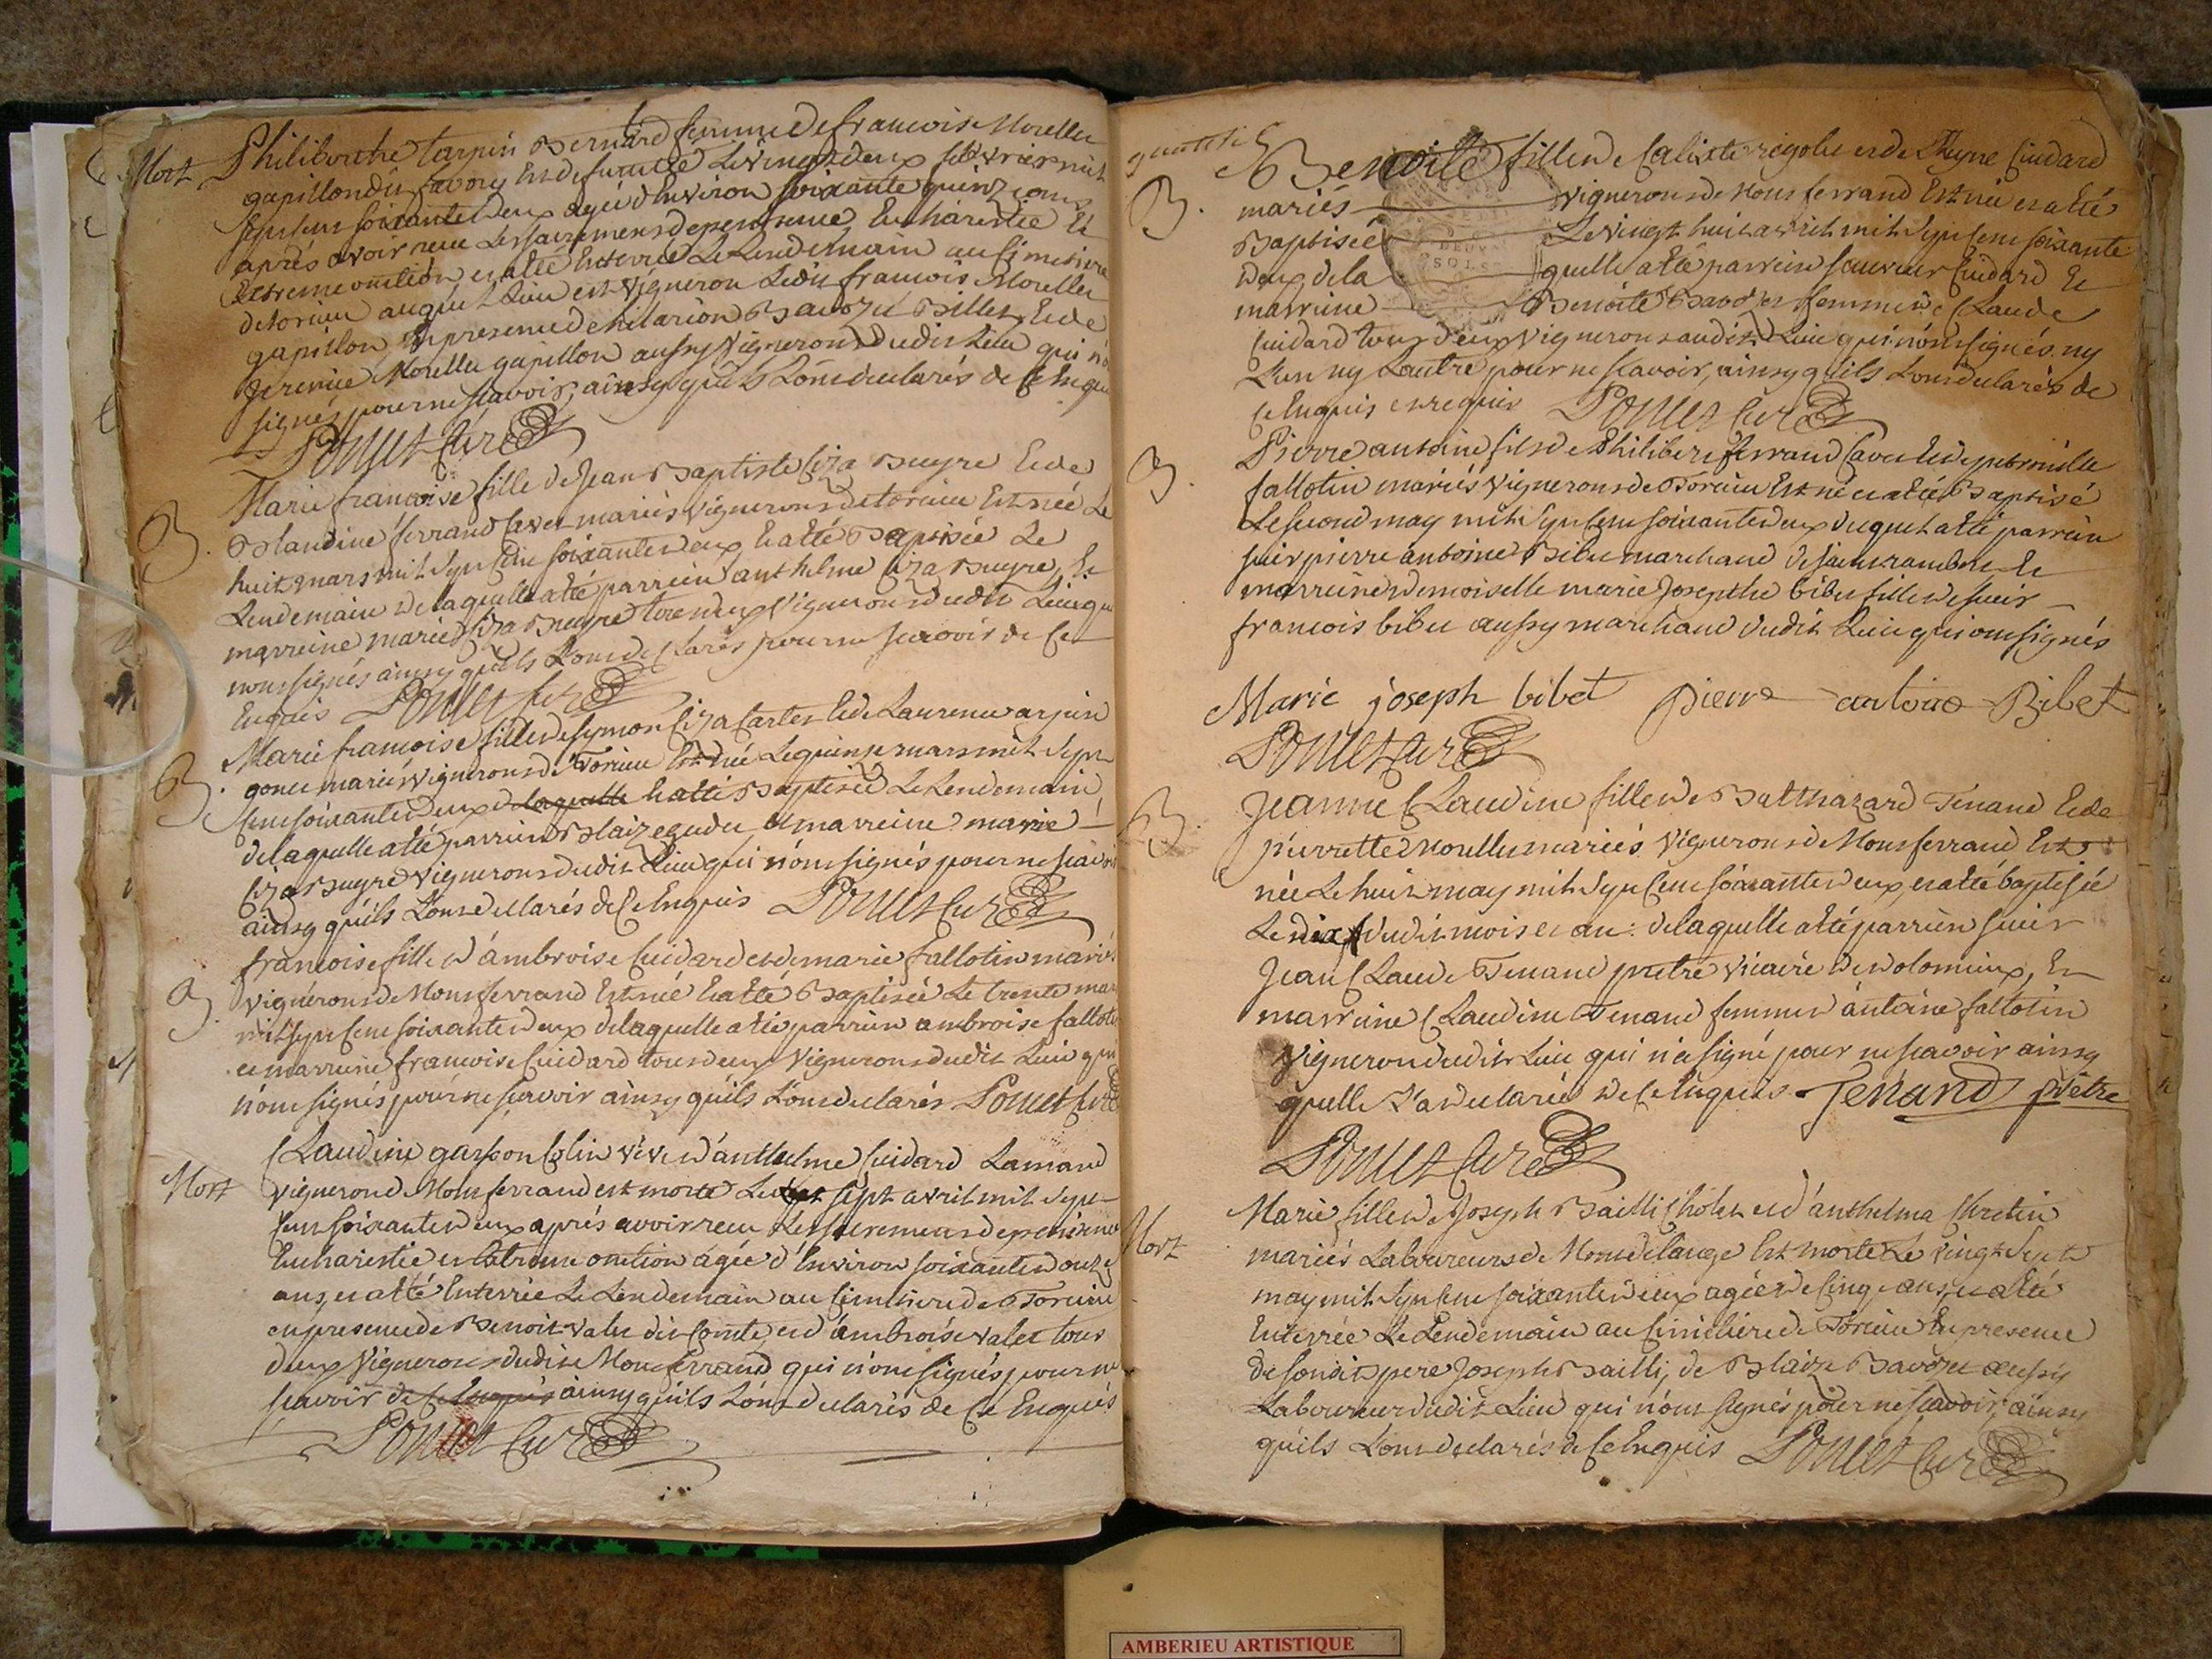 Mort
Philiberthe tarpin Bernard femme de francois Morellet
gapillon dit savory Est defuntte Le vingt deux febvrier mil
sept cent soixante deux agée d'Environ soixante quinze ans
aprés avoir reçue Les sacremens de penitence Eucharistie Et
Extreme onction et a été Enterrée Le Lendemain au Cimetiere
de torcieu auquel Lieu est vigneron Ledit francois Morellet
gapillon, En presence de hilarion Bavozet Billet, Et de
Morellet gapillon aussy vignerons dudit Lieu qui n'o
signés pour ne scavoir, ainsy qu'ils L'ont declarés de Ce Enquis
Ponset Curé
B.
Marie francoise fille de Jean Baptiste Ciza Bugre Et de
Blandine ferrand Cavet mariés vignerons de torcieu Est née Le
huit mars mil sept Cent soixante deux Et a été Baptisée Le
Lendemain de laquelle a été parrein anthelme Ciza Bugre, Et
marreine marie Ciza Bugre tous deux vignerons dudit Lieu qui
n'ont signés ainsy qu'ils L'ont declarés pour ne scavoir de Ce
Enquis Ponset Curé
B.
Marie francoise fille de symon Ciza Cartet Et de Laurence arpin
gonet mariés vignerons de Torcieu Est née Le quinze mars mil sept
Cent soixante deux de laquelle Et a été Baptisée Le Lendemain
de laquelle a été parrein Blaize et marreine marie
Ciza Bugre vignerons dudit Lieu qui n'ont signés pour ne scavoir
ainsy qu'ils L'ont declarés de Ce Enquis Ponset Curé
B.
francoise fille d'ambroise Cuidard et de marie fallotin mariés
vignerons de Montferrand Est née Et a été Baptisée Le trente mars
mil sept Cent soixante deux de laquelle a été parrein ambroise fallotin
et marreine francoise Cuidard tous deux vignerons dudit Lieu qui
n'ont signés pour ne scavoir ainsy qu'ils L'ont declarés Ponset Curé
Mort
Claudine garçon Colin veve d'anthelme Cuidard Lamand
vigneron de Montferrand est morte Le sept avril mil sept
Cent soixante deux aprés avoir reçu Les sacremens de penitence
Eucharistie et Extreme onction agée d'Environ soixante douze
ans, et a été Enterrée Le Lendemain au Cimetiere de Torcieu
en presence de Benoit valet dit Comte et d'ambroise valet tous
deux vignerons dudit Montferrand qui n'ont signés pour ne
scavoir de Ce Enquis ainsy qu'ils L'ont declarés de Ce Enquis
Ponset Curé
B.
Benoite fille de Calixte rigolet et de Cuidard
mariés vignerons de Montferrand Est née et a été
Baptisée Le vingt huit avril mil sept Cent soixante
deux de la quelle a été parrein Cuidard Et
marreine Benoite Bavozet femme de Claude
Cuidard tous deux vignerons audit Lieu qui n'ont signés ny
L'un ny L'autre pour ne scavoir, ainsy qu'ils L'ont declarés de
Ce Enquis et requis Ponset Curé
B.
Pierre antoine fils de Philibert ferrand Cavet Et de petronille
fallotin mariés vignerons de Torcieu Est né et a été Baptisé
Le second may mil sept Cent soixante deux duquel a été parrein
sieur pierre antoine Bibet marchand de saint rambert Et
marreine demoiselle marie Josepthe bibet fille de sieur
francois bibet aussy marchand dudit Lieu qui ont signés
Marie joseph bibet pierre antoine Bibet
Ponset Curé
B.
Jeanne Claudine fille de Balthazard Tenand Et de
pierrette Morellet mariés vignerons de Montferrand Est
née Le huit may mil sept Cent soixante deux, et a été baptisée
Le dix dudit mois et an: de laquelle a été parrein sieur
Jean Claude Tenand prêtre vicaire de dolomieux, Et
marreine Claudine Tenand femme d'antoine fallotin
vigneron dudit Lieu qui n'a signé pour ne scavoir ainsy
quelle L'a declaré de Ce Enquis Tenand prêtre
Ponset Curé
Mort
Marie fille de Joseph Bailli Cholet et d'anthelma Chretin
mariés Laboureurs de Montdelange Est morte Le vingt sept
may mil sept Cent soixante deux agée de Cinq ans, et a été
Enterrée Le Lendemain au Cimetiere de Torcieu En presence
de son dit pere Joseph Bailli, de Blaize Bavozet aussy
Laboureur dudit Lieu qui n'ont signés pour ne scavoir, ainsy
qu'ils L'ont declarés de Ce Enquis Ponset Curé
AMBERIEU ARTISTIQUE